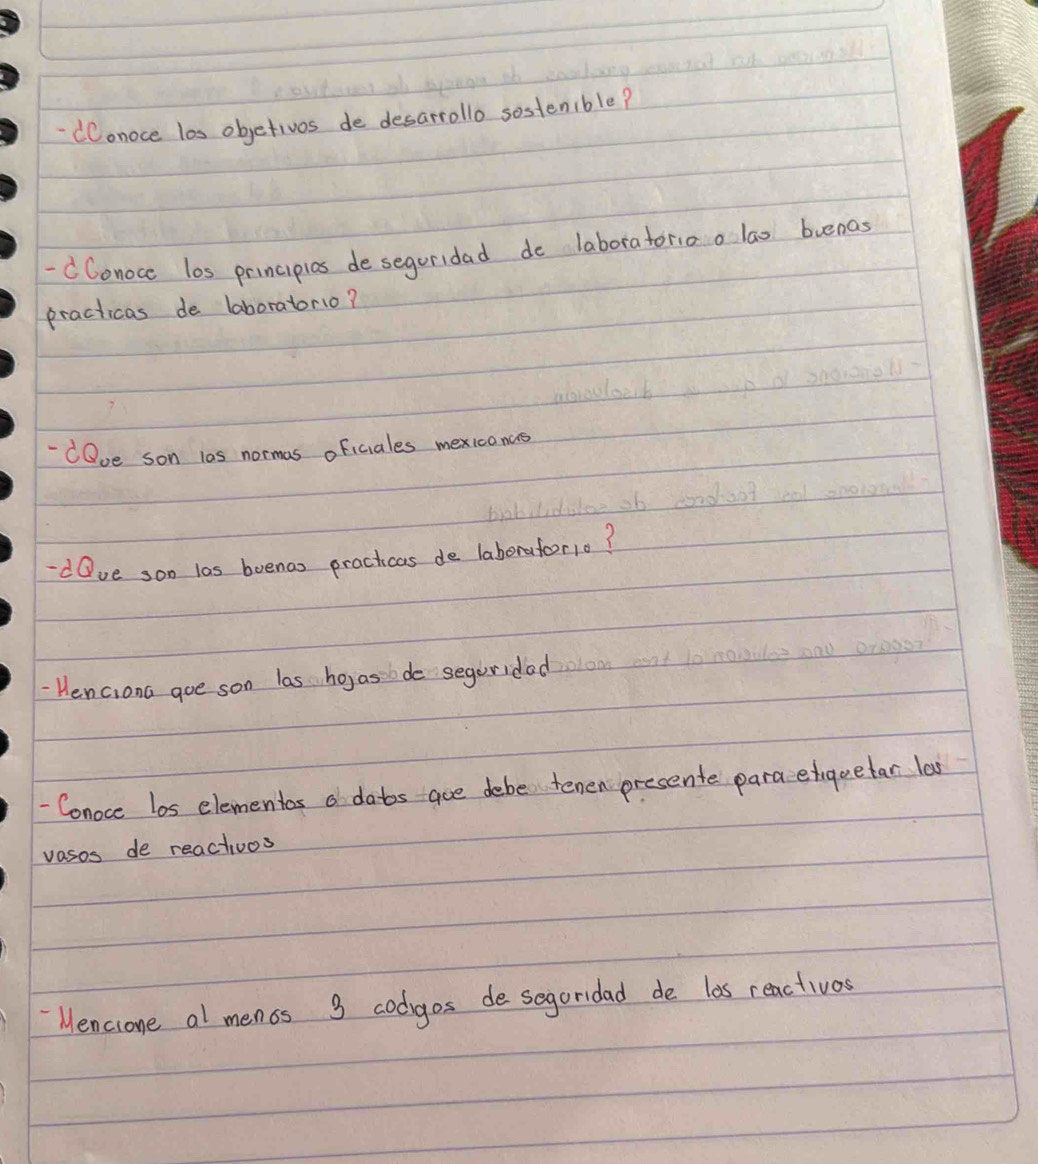 -¿Conoce los objetivos de desarrollo sostenible?
-¿Conoce los principios de seguridad de laboratorio o las buenas
practicas de laboratorio?
-¿Que son las normas oficiales mexicanas
-¿Que son las buenas practicas de laboratorio?
-Menciona que son las hojas de seguridad
-Conoce los elementos o datos que debe tener presente para etiquetar los
vasos de reactivos
-Mencione al menos 3 codigos de seguridad de los reactivos